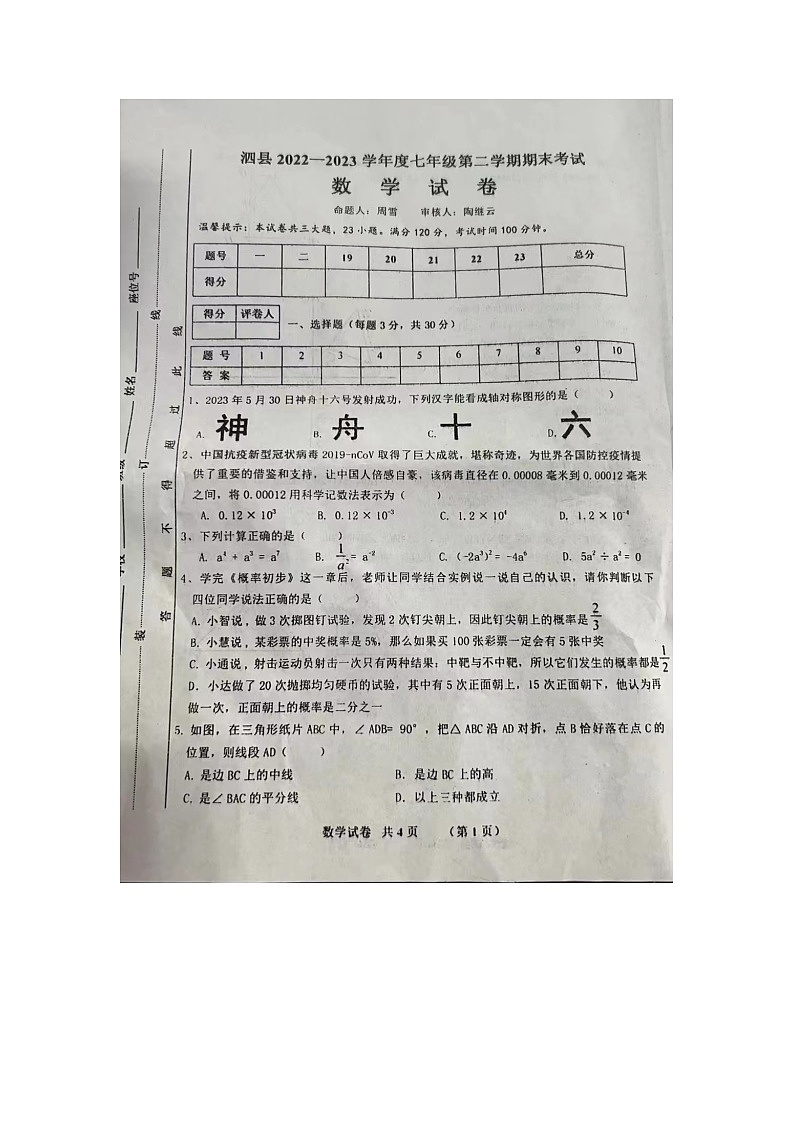 泗县 2022—2023 学年度七年级第二学期期末考试
数 学 试 卷
命题人：周雪 审核人：陶继云
温馨提示：本试卷共三大题，23 小题。满分 120 分，考试时间 100 分钟。
题号 一 二 19 20 21 22 23 总分
得分
得分 评卷人
一、选择题（每题 3 分，共 30 分）
题 号 1 2 3 4 5 6 7 8 9 10
答 案
1、2023 年 5 月 30 日神舟十六号发射成功，下列汉字能看成轴对称图形的是（ ）
A. 神 B. 舟 C. 十 D. 六
2、中国抗疫新型冠状病毒 2019-nCoV 取得了巨大成就，堪称奇迹，为世界各国防控疫情提
供了重要的借鉴和支持，让中国人倍感自豪，该病毒直径在 0.00008 毫米到 0.00012 毫米
之间，将 0.00012 用科学记数法表示为（ ）
A. 0.12 × 10³ B. 0.12 × 10⁻³ C. 1.2 × 10⁴ D. 1.2 × 10⁻⁴
3、下列计算正确的是（ ）
A. a⁴ + a³ = a⁷ B. 1/a² = a⁻² C. (-2a³)² = -4a⁶ D. 5a² ÷ a² = 0
4、学完《概率初步》这一章后，老师让同学结合实例说一说自己的认识，请你判断以下
四位同学说法正确的是（ ）
A. 小智说，做 3 次掷图钉试验，发现 2 次钉尖朝上，因此钉尖朝上的概率是 2/3
B. 小慧说，某彩票的中奖概率是 5%，那么如果买 100 张彩票一定会有 5 张中奖
C. 小通说，射击运动员射击一次只有两种结果：中靶与不中靶，所以它们发生的概率都是 1/2
D. 小达做了 20 次抛掷均匀硬币的试验，其中有 5 次正面朝上，15 次正面朝下，他认为再
做一次，正面朝上的概率是二分之一
5. 如图，在三角形纸片 ABC 中，∠ ADB= 90°，把△ ABC 沿 AD 对折，点 B 恰好落在点 C 的
位置，则线段 AD（ ）
A. 是边 BC 上的中线 B. 是边 BC 上的高
C. 是∠ BAC 的平分线 D. 以上三种都成立
数学试卷 共 4 页 （第 1 页）
座位号
姓名
学校
装 订 线
答 题 不 得 超 过 此 线